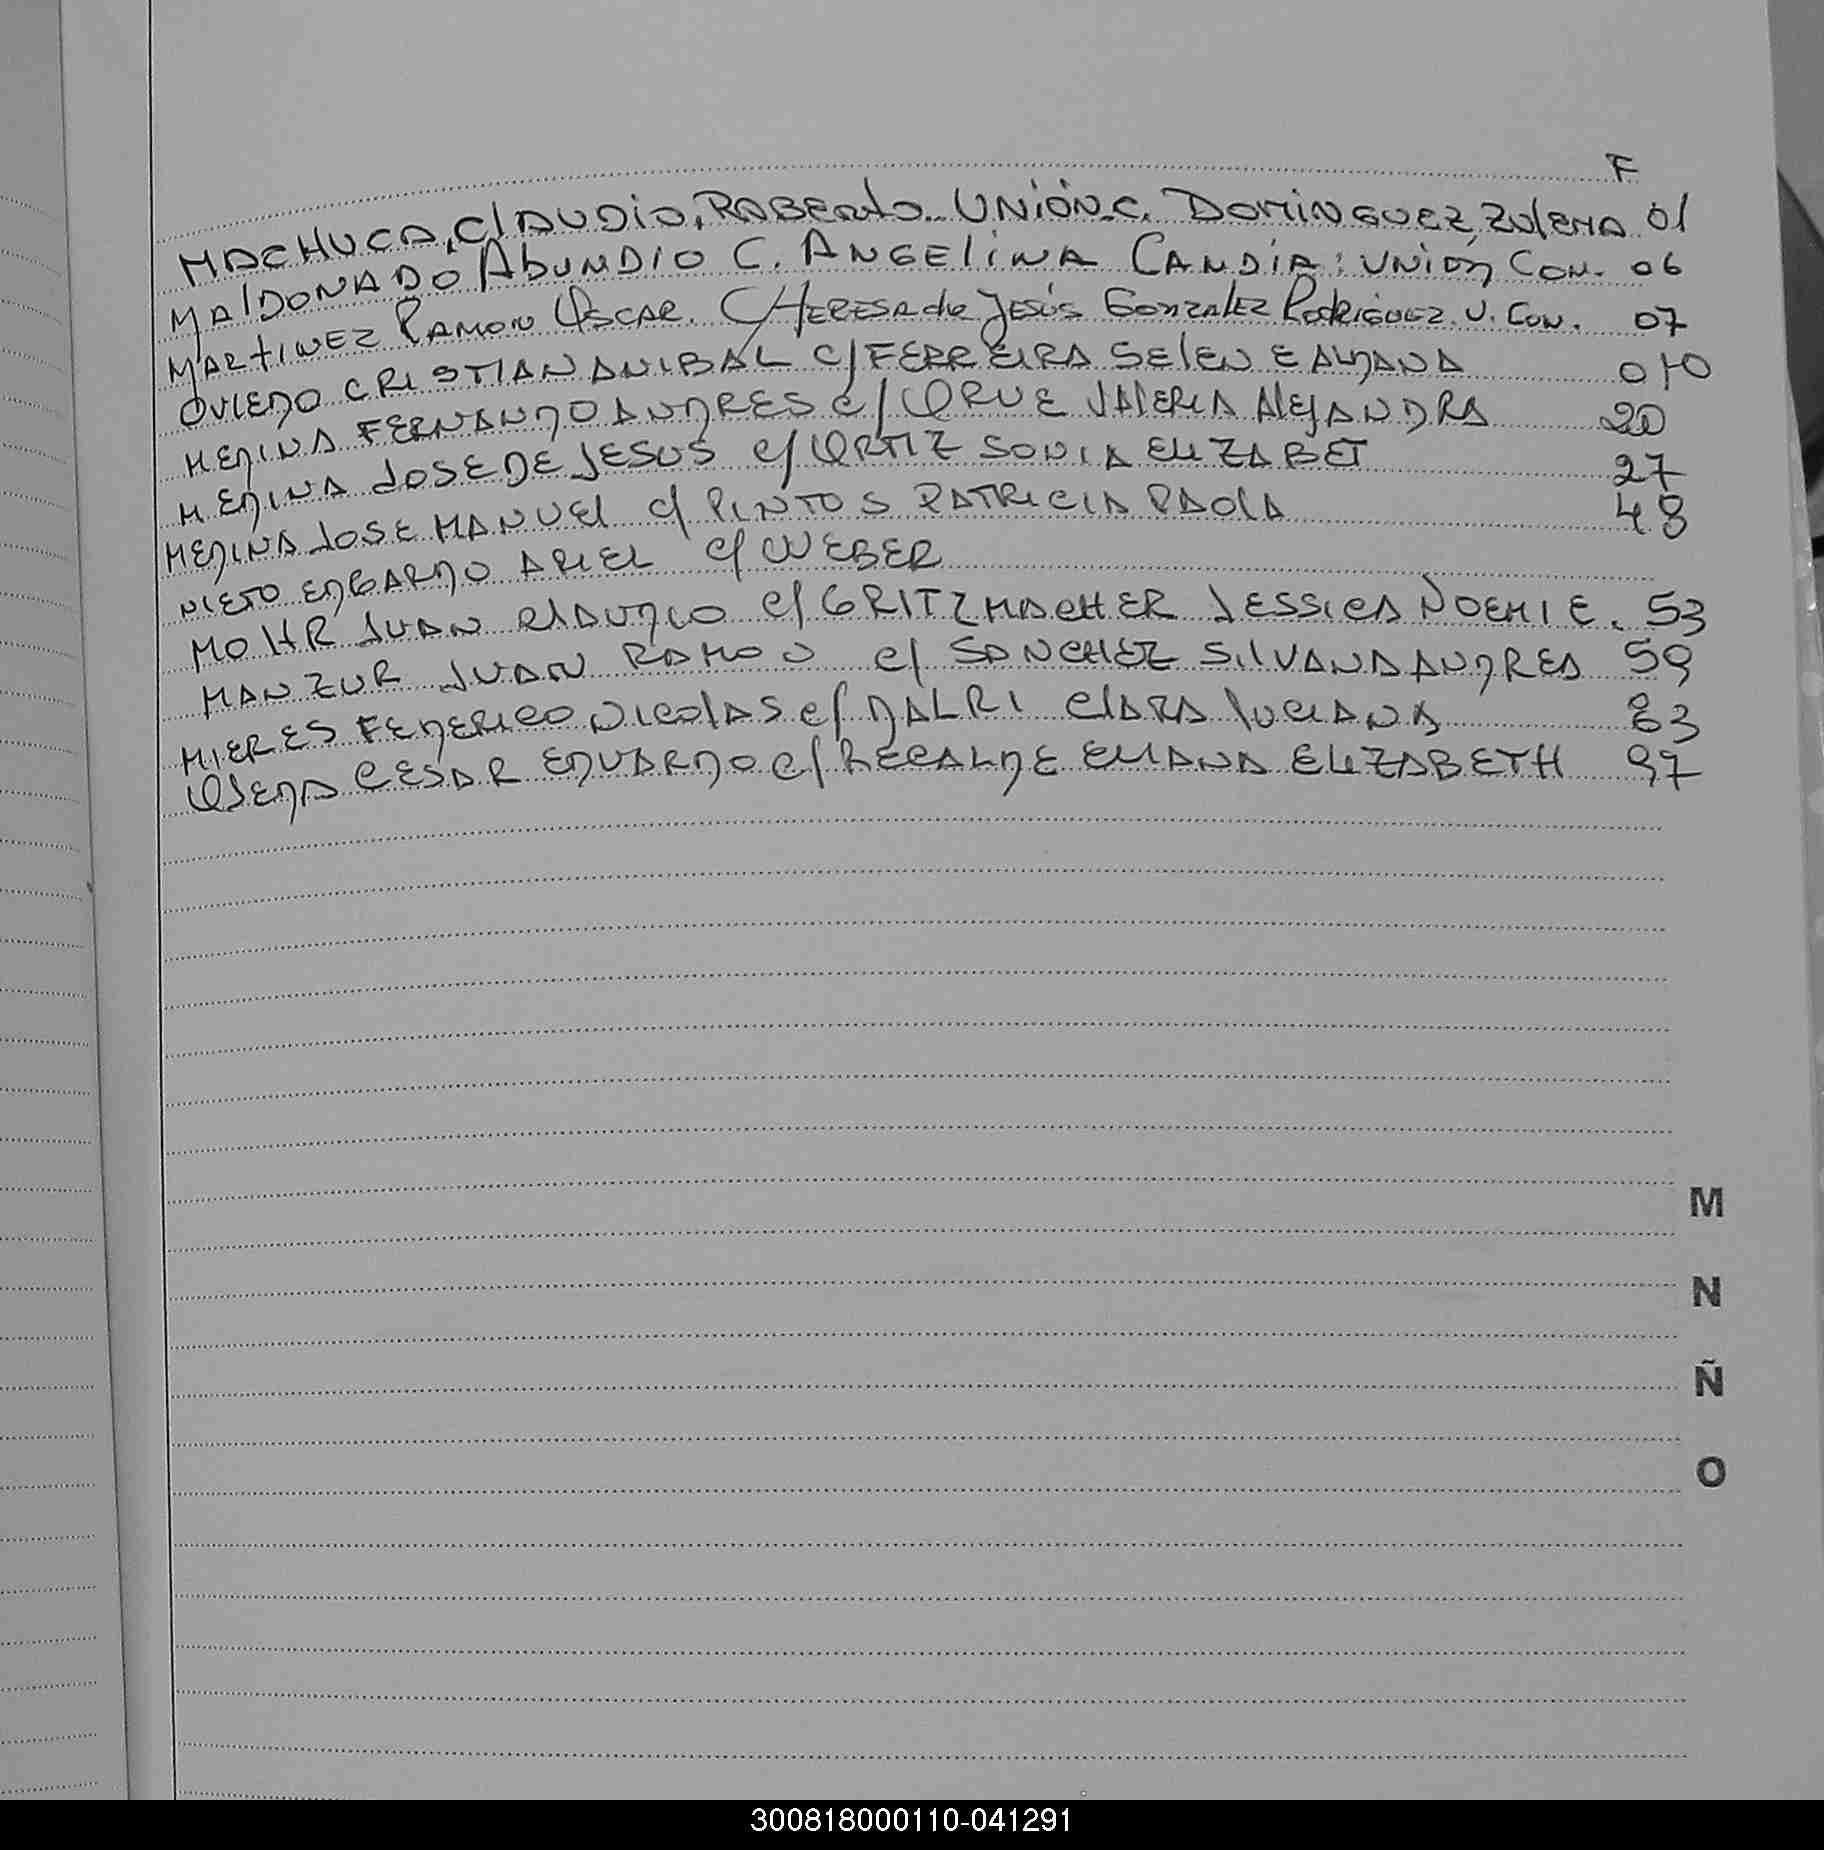 F
MACHUCA, ClAUDiO, ROBERto. UNIÓN.C. DOMINGUEZ, ZUlEMA 01
MAlDONADO ABUNDIO C. ANGELiNA CANDIA: UNIÓN CON. 06
MARTINEZ RAMON OSCAR. C/TERESA de JESÚS GONZALEZ RODRIGUEZ. U. CON. 07
OVIEDO CRISTIAN ANIBAL C/ FERREIRA SElENE ALDANA 010
MEDINA FERNANDO ANDRES C/ ORUE VAlERIA AlEJANDRA 20
MEDINA JOSE DE JESUS C/ ORTIZ SONIA ELIZABET 27
MEDINA JOSE MANUEl C/ PINTOS PATRICIA PAOlA 48
NIETO EDGARDO ARIEL C/ WEBER
MOHR JUAN ClAUDIO C/ GRITZMACHER JESSICA NOEMI E. 53
MANZUR JUAN RAMON C/ SANCHEZ SILVANA ANDREA 59
MIERES FEDERICO NICOlAS C/ DALRI ClARA lUCIANA 83
OJEDA CESAR EDUARDO C/ RECALDE ELIANA ELIZABETH 97
M
N
Ñ
O
300818000110-041291